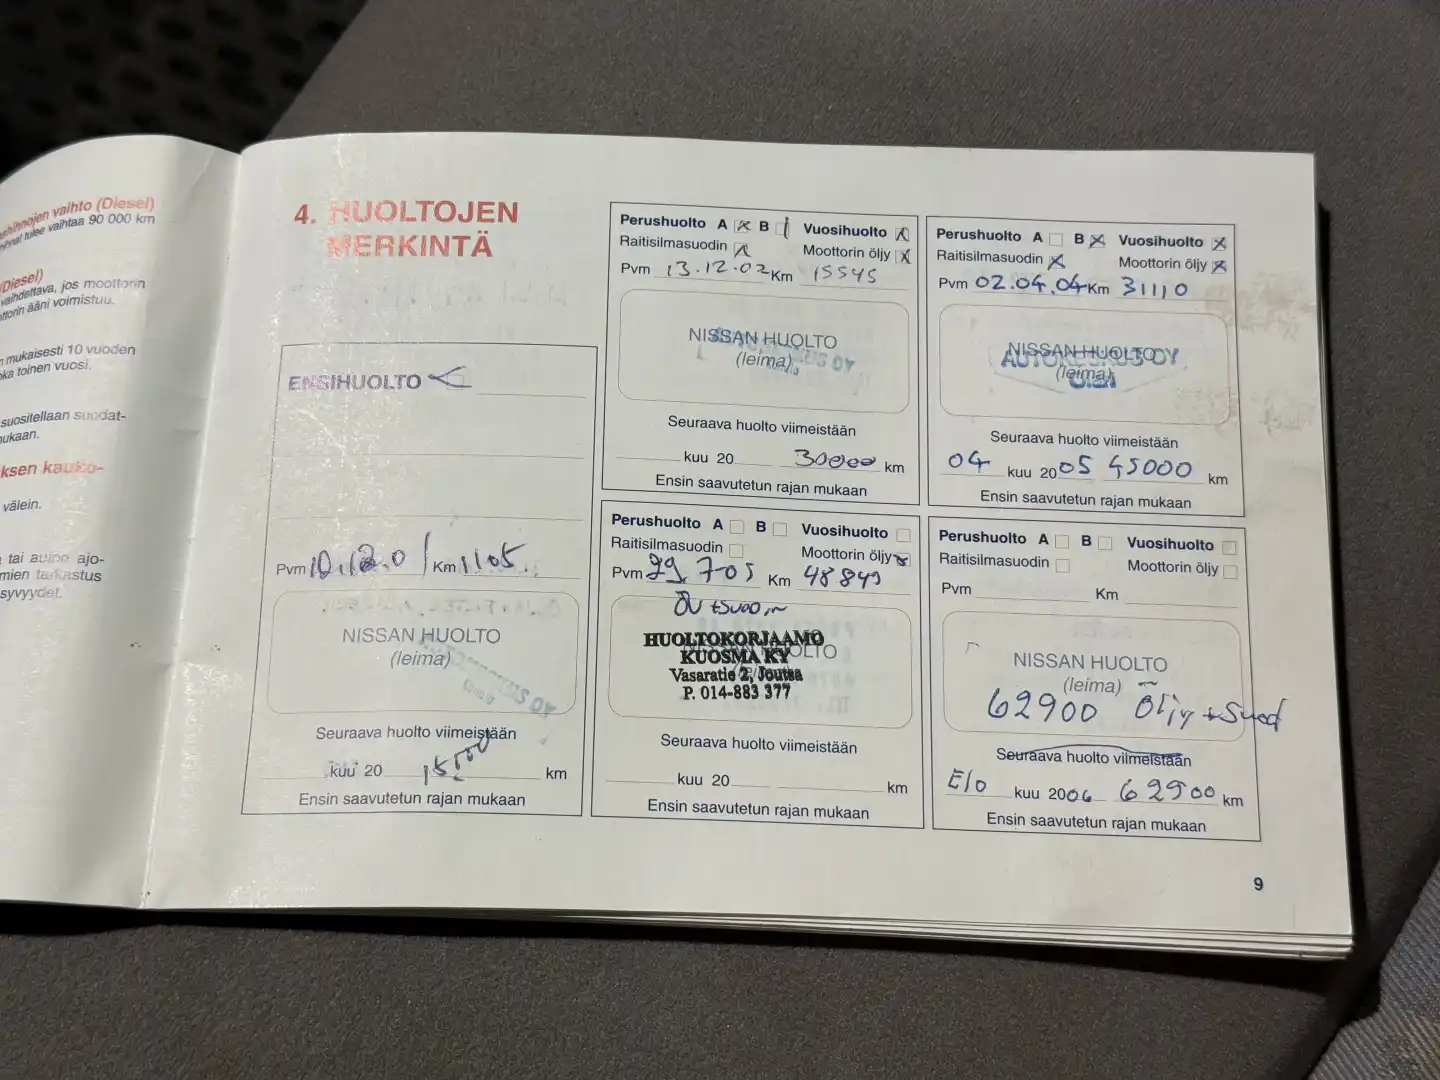 vaihto (Diesel)
tulee vaihtaa 90 000 km
(Diesel)
vaihdettava, jos moottorin
ääni voimistuu.
mukaisesti 10 vuoden
toinen vuosi.
suositellaan suodat-
mukaan.
kauko-
välein.
tai auton ajo-
tarkastus
syvyydet.
4. HUOLTOJEN
MERKINTÄ
ENSIHUOLTO
Pvm
Km 1105.
NISSAN HUOLTO
(leima)
Seuraava huolto viimeistään
kuu 20 15000 km
Ensin saavutetun rajan mukaan
Perushuolto A B Vuosihuolto
Raitisilmasuodin Moottorin öljy
Pvm 13.12.02 Km 15545
NISSAN HUOLTO
(leima)
Seuraava huolto viimeistään
kuu 20 30000 km
Ensin saavutetun rajan mukaan
Perushuolto A B Vuosihuolto
Raitisilmasuodin Moottorin öljy
Pvm 02.04.04 Km 31110
NISSAN HUOLTO
AUTOKESKUS OY
(leima)
Seuraava huolto viimeistään
04 kuu 2005 45000 km
Ensin saavutetun rajan mukaan
Perushuolto A B Vuosihuolto
Raitisilmasuodin Moottorin öljy
Pvm 29.705 Km 48849
HUOLTOKORJAAMO
KUOSMA KY
NISSAN HUOLTO
Vasaratie 2, Joutsa
P. 014-883 377
Seuraava huolto viimeistään
kuu 20 km
Ensin saavutetun rajan mukaan
Perushuolto A B Vuosihuolto
Raitisilmasuodin Moottorin öljy
Pvm Km
NISSAN HUOLTO
(leima)
62900 Öljy + Suod
Seuraava huolto viimeistään
E/o kuu 2006 62900 km
Ensin saavutetun rajan mukaan
9